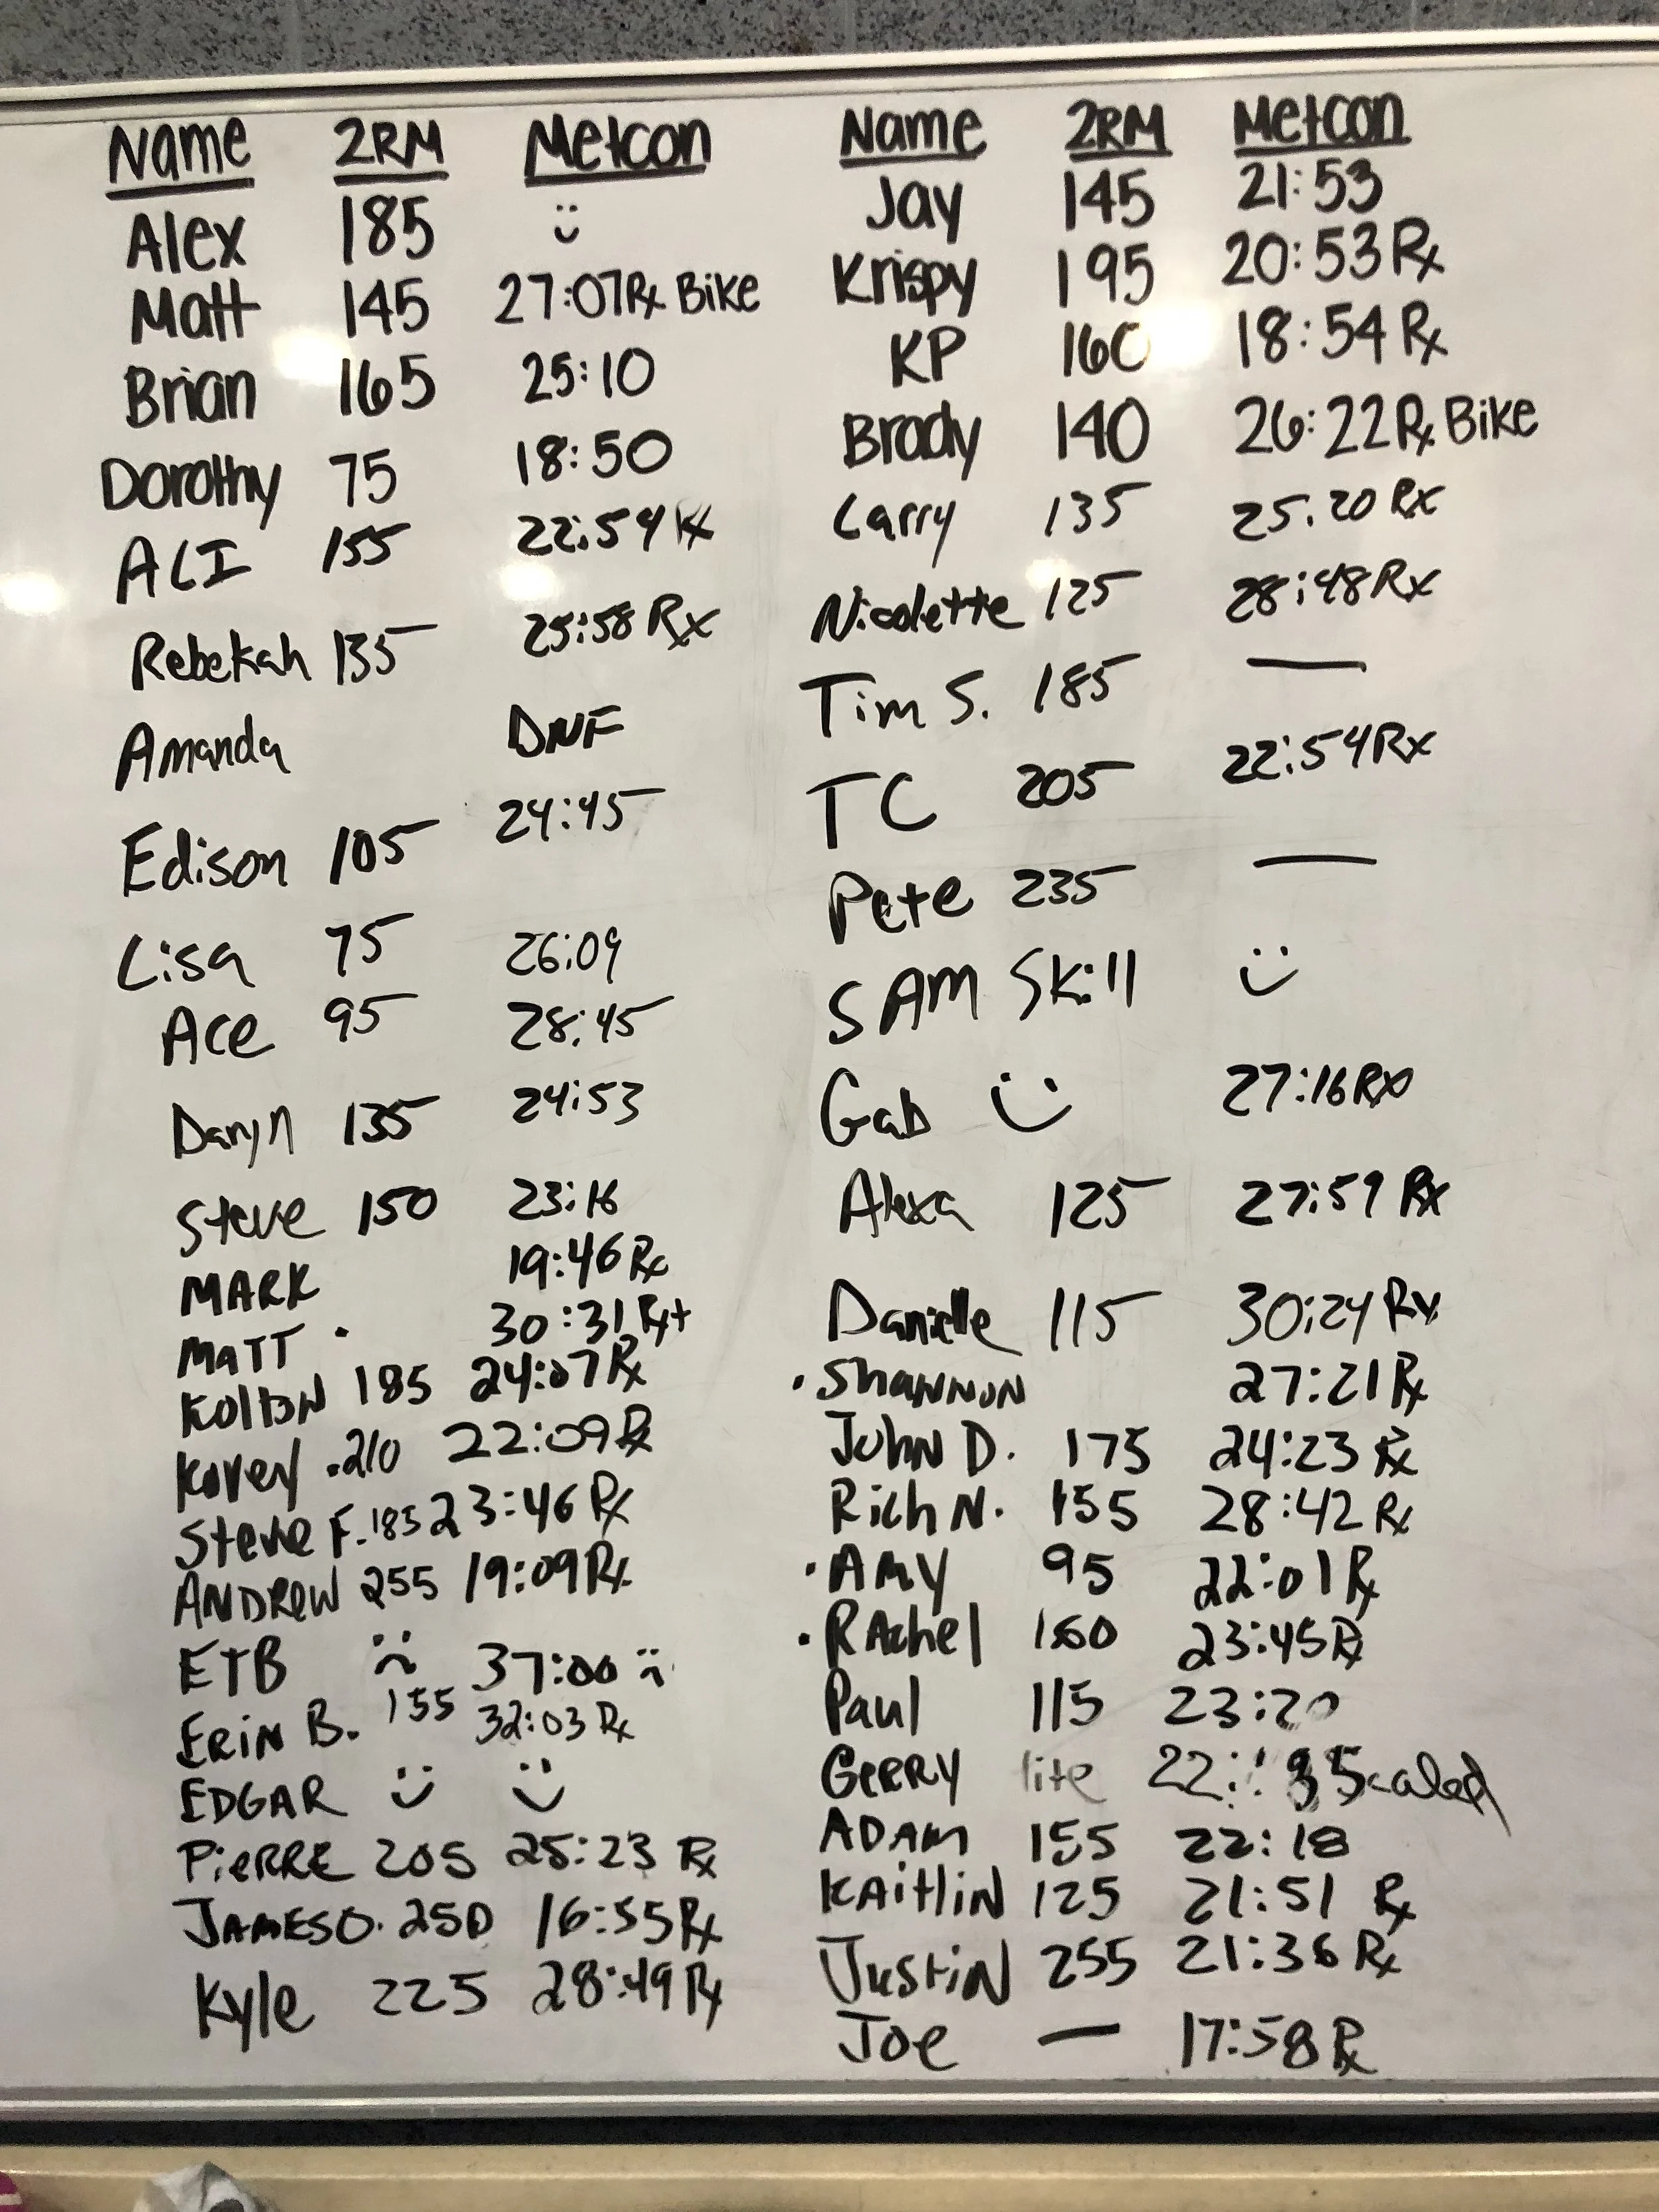 Name 2RM Metcon
Alex 185 :)
Matt 145 27:07 Rx Bike
Brian 165 25:10
Dorothy 75 18:50
ALI 155 22:54 Rx
Rebekah 135 25:58 Rx
Amanda DNF
Edison 105 24:45
Lisa 75 26:09
Ace 95 28:45
Daryn 135 24:53
Steve 150 23:16
MARK 19:46 Rx
MATT . 30:31 Rx+
KOLTON 185 24:07 Rx
Korey .210 22:09 Rx
Steve F. 185 23:46 Rx
ANDREW 255 19:09 Rx
ETB :( 37:00 :(
ERIN B. 155 32:03 Rx
EDGAR :) :)
PIERRE 205 25:23 Rx
JAMES O. 250 16:55 Rx
Kyle 225 28:49 Rx
Name 2RM Metcon
Jay 145 21:53
Krispy 195 20:53 Rx
KP 160 18:54 Rx
Brady 140 26:22 Rx Bike
Larry 135 25:20 Rx
Nicolette 125 28:48 Rx
Tim S. 185 —
TC 205 22:54 Rx
Pete 235 —
SAM Skill :)
Gab :) 27:16 Rx
Alexa 125 27:59 Rx
Danielle 115 30:24 Rx
. SHANNON 27:21 Rx
JOHN D. 175 24:23 Rx
Rich N. 155 28:42 Rx
. AMY 95 22:01 Rx
. RAchel 160 23:45 Rx
Paul 115 23:20
GERRY lite Scaled
ADAM 155 22:18
KAITLIN 125 21:51 Rx
JUSTIN 255 21:36 Rx
Joe — 17:58 Rx